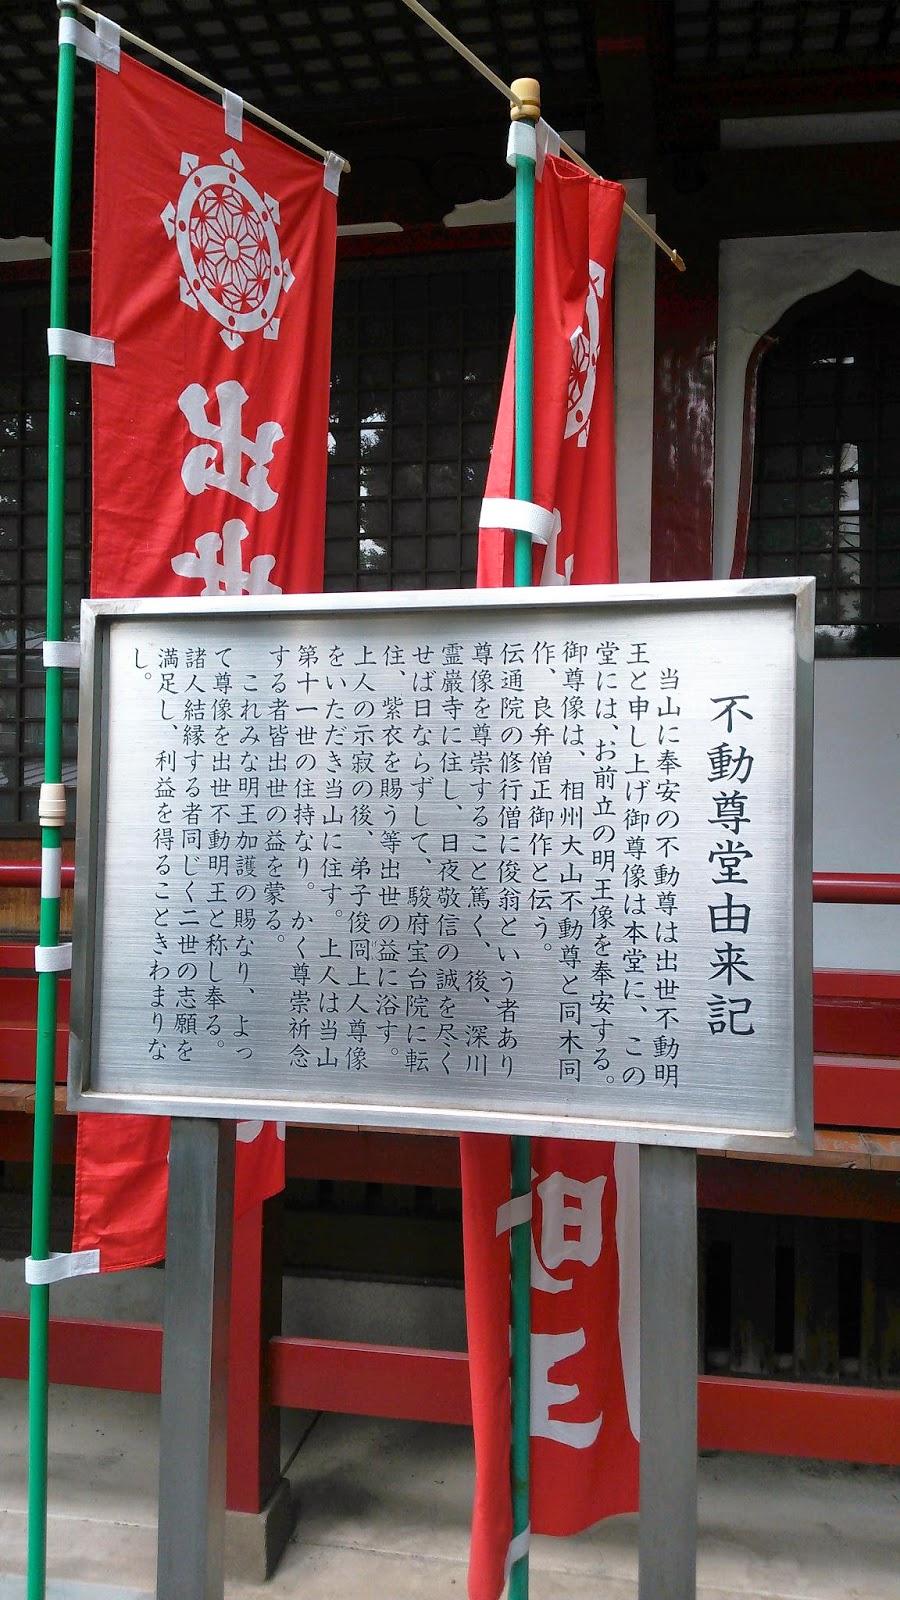 不動尊堂由来記
当山に奉安の不動尊は出世不動明
王と申し上げ御尊像は本堂に、この
堂には、お前立の明王像を奉安する。
御尊像は、相州大山不動尊と同木同
作、良弁僧正御作と伝う。
伝通院の修行僧に俊翁という者あり
尊像を尊崇すること篤く、後、深川
霊巌寺に住し、日夜敬信の誠を尽く
せば日ならずして、駿府宝台院に転
住、紫衣を賜う等出世の益に浴す。
上人の示寂の後、弟子俊冏上人尊像
をいただき当山に住す。上人は当山
第十一世の住持なり。かく尊崇祈念
する者皆出世の益を蒙る。
これみな明王加護の賜なり、よっ
て尊像を出世不動明王と称し奉る。
諸人結縁する者同じく二世の志願を
満足し、利益を得ることきわまりな
し。
出世
王